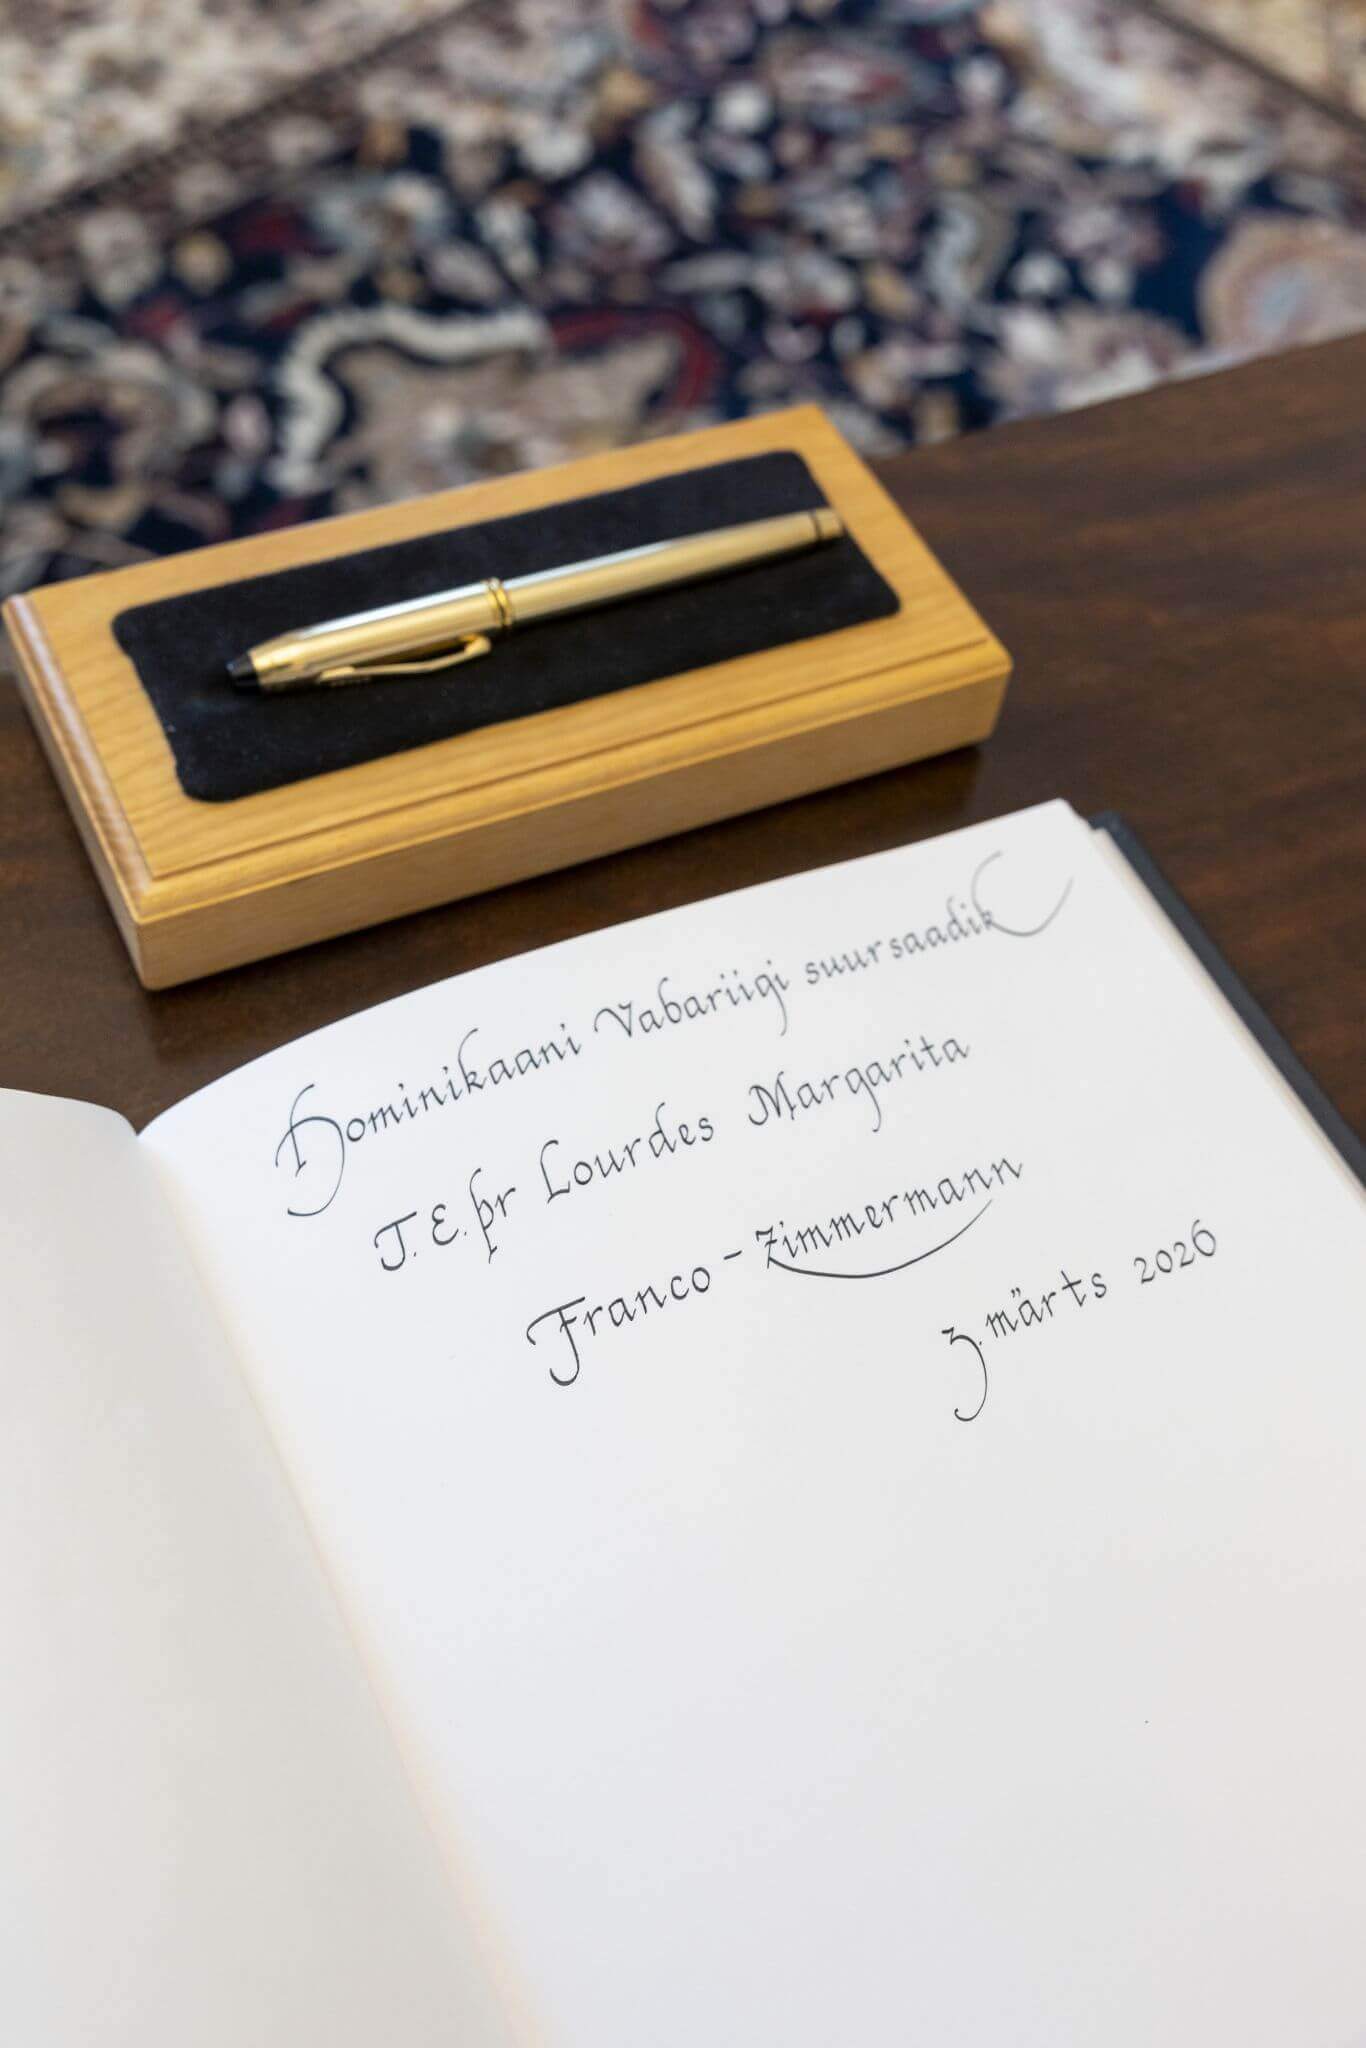 Dominikaani Vabariigi suursaadik
T. E. pr Lourdes Margarita
Franco-Zimmermann
3. märts 2026